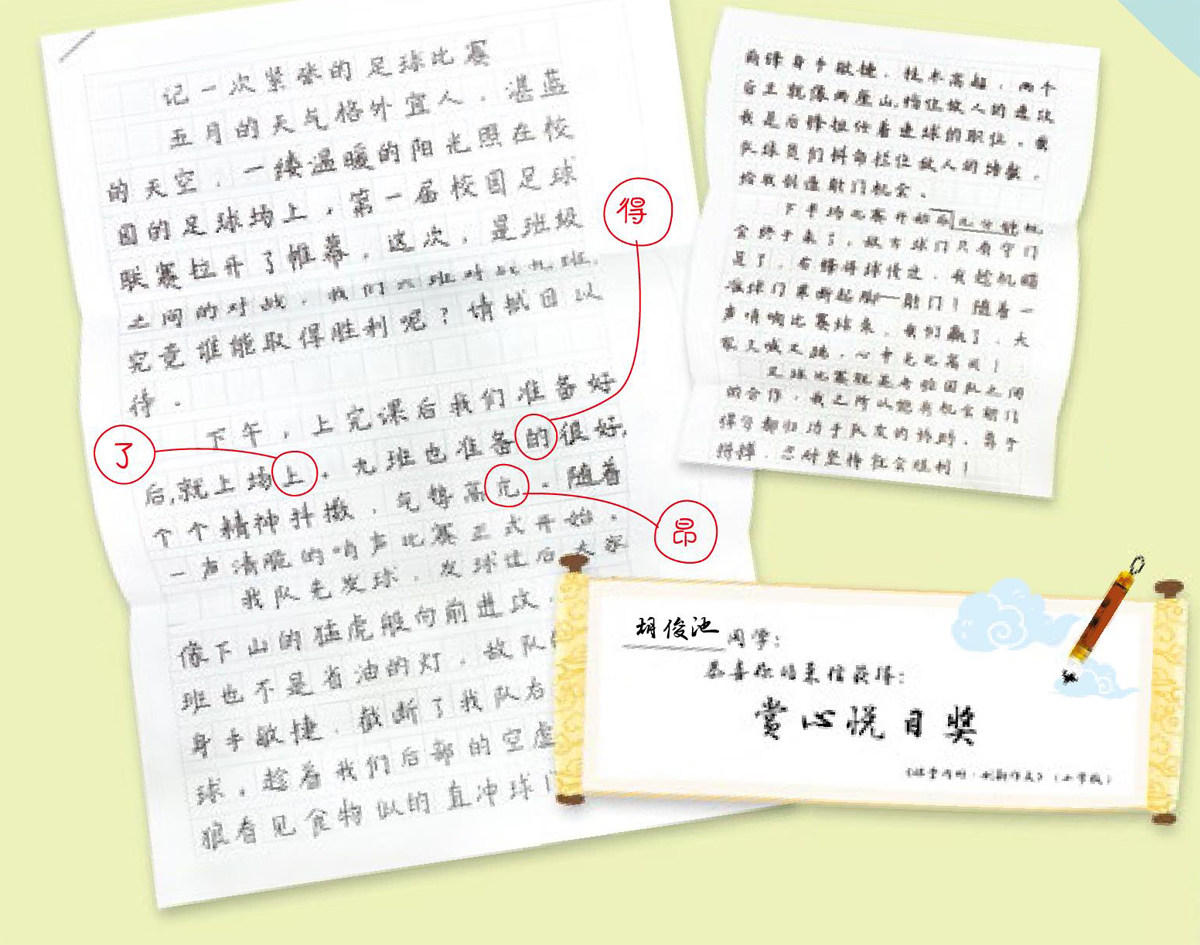 记一次紧张的足球比赛
五月的天气格外宜人，湛蓝
的天空，一缕温暖的阳光照在校
园的足球场上，第一届校园足球
联赛拉开了帷幕，这次，是班级
之间的对战，我们六班对战九班，
究竟谁能取得胜利呢？请拭目以
待．
下午，上完课后我们准备好
后，就上场上．九班也准备的很好，
个个精神抖擞，气势高亢．随着
一声清脆的哨声比赛正式开始．
我队先发球．发球过后大家
像下山的猛虎般向前进攻
班也不是省油的灯，敌队
身手敏捷．截断了我队右
球．趁着我们后部的空虚
狼看见食物似的直冲球门
得
了
昂
前锋身手敏捷．技术高超，两个
后卫就像两座山，挡住敌人的进攻
我是后锋担任着进球的职位．我
队球员们拼命拦住敌人的
给我创造射门机会．
下半场比赛开始 几分钟机
会终于来了，敌方球门只有守门
员了，右锋将球传进，我趁机瞄
准球门果断起脚——射门！随着一
声哨响比赛结束．我们赢了．大
家又喊又跳，心中无比高兴！
足球比赛就是考验团队之间
的合作，我之所以能有机会射门
得分都归功于队友的协助．勇于
拼搏，
胡俊池同学：
恭喜你的来信获得：
赏心悦目奖
《课堂内外·创新作文》（小学版）